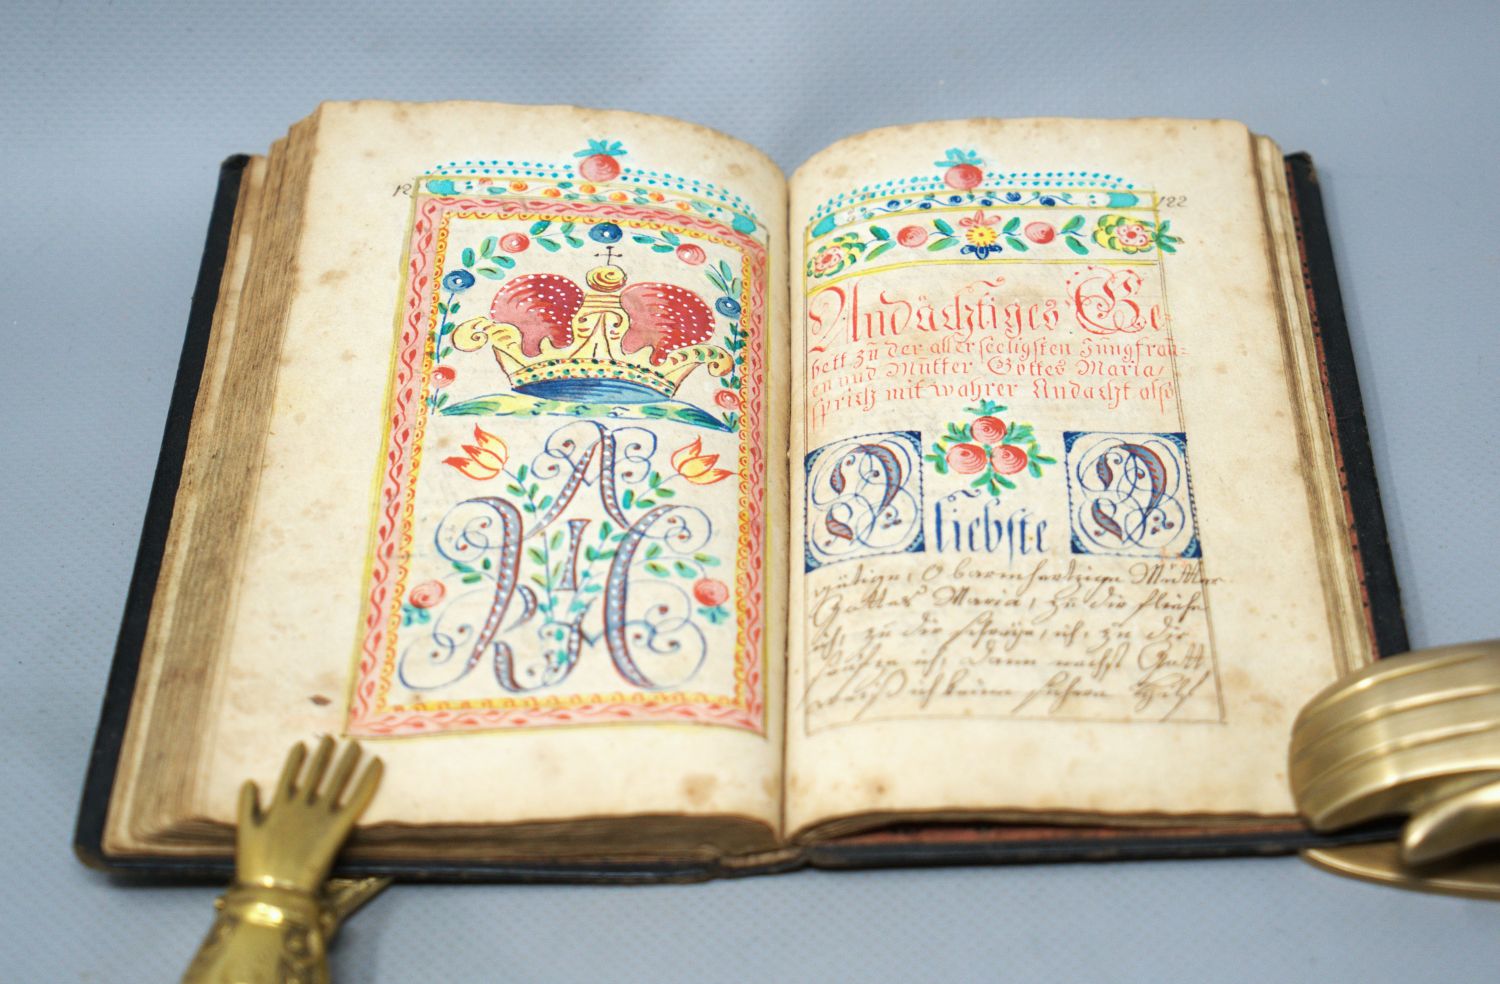 12
122
Andächtiges Ge-
bett zu der allerseeligsten Jungfrau=
en und Mutter Gottes Maria,
sprich mit wahrer Andacht also
O liebste O
gütige, O barmhertzige Mutter
Gottes Maria, zu dir fliehe
ich, zu dir schreye, ich, zu dir
ich, dann nechst Gott,
weiß ich keine sichere Hilf